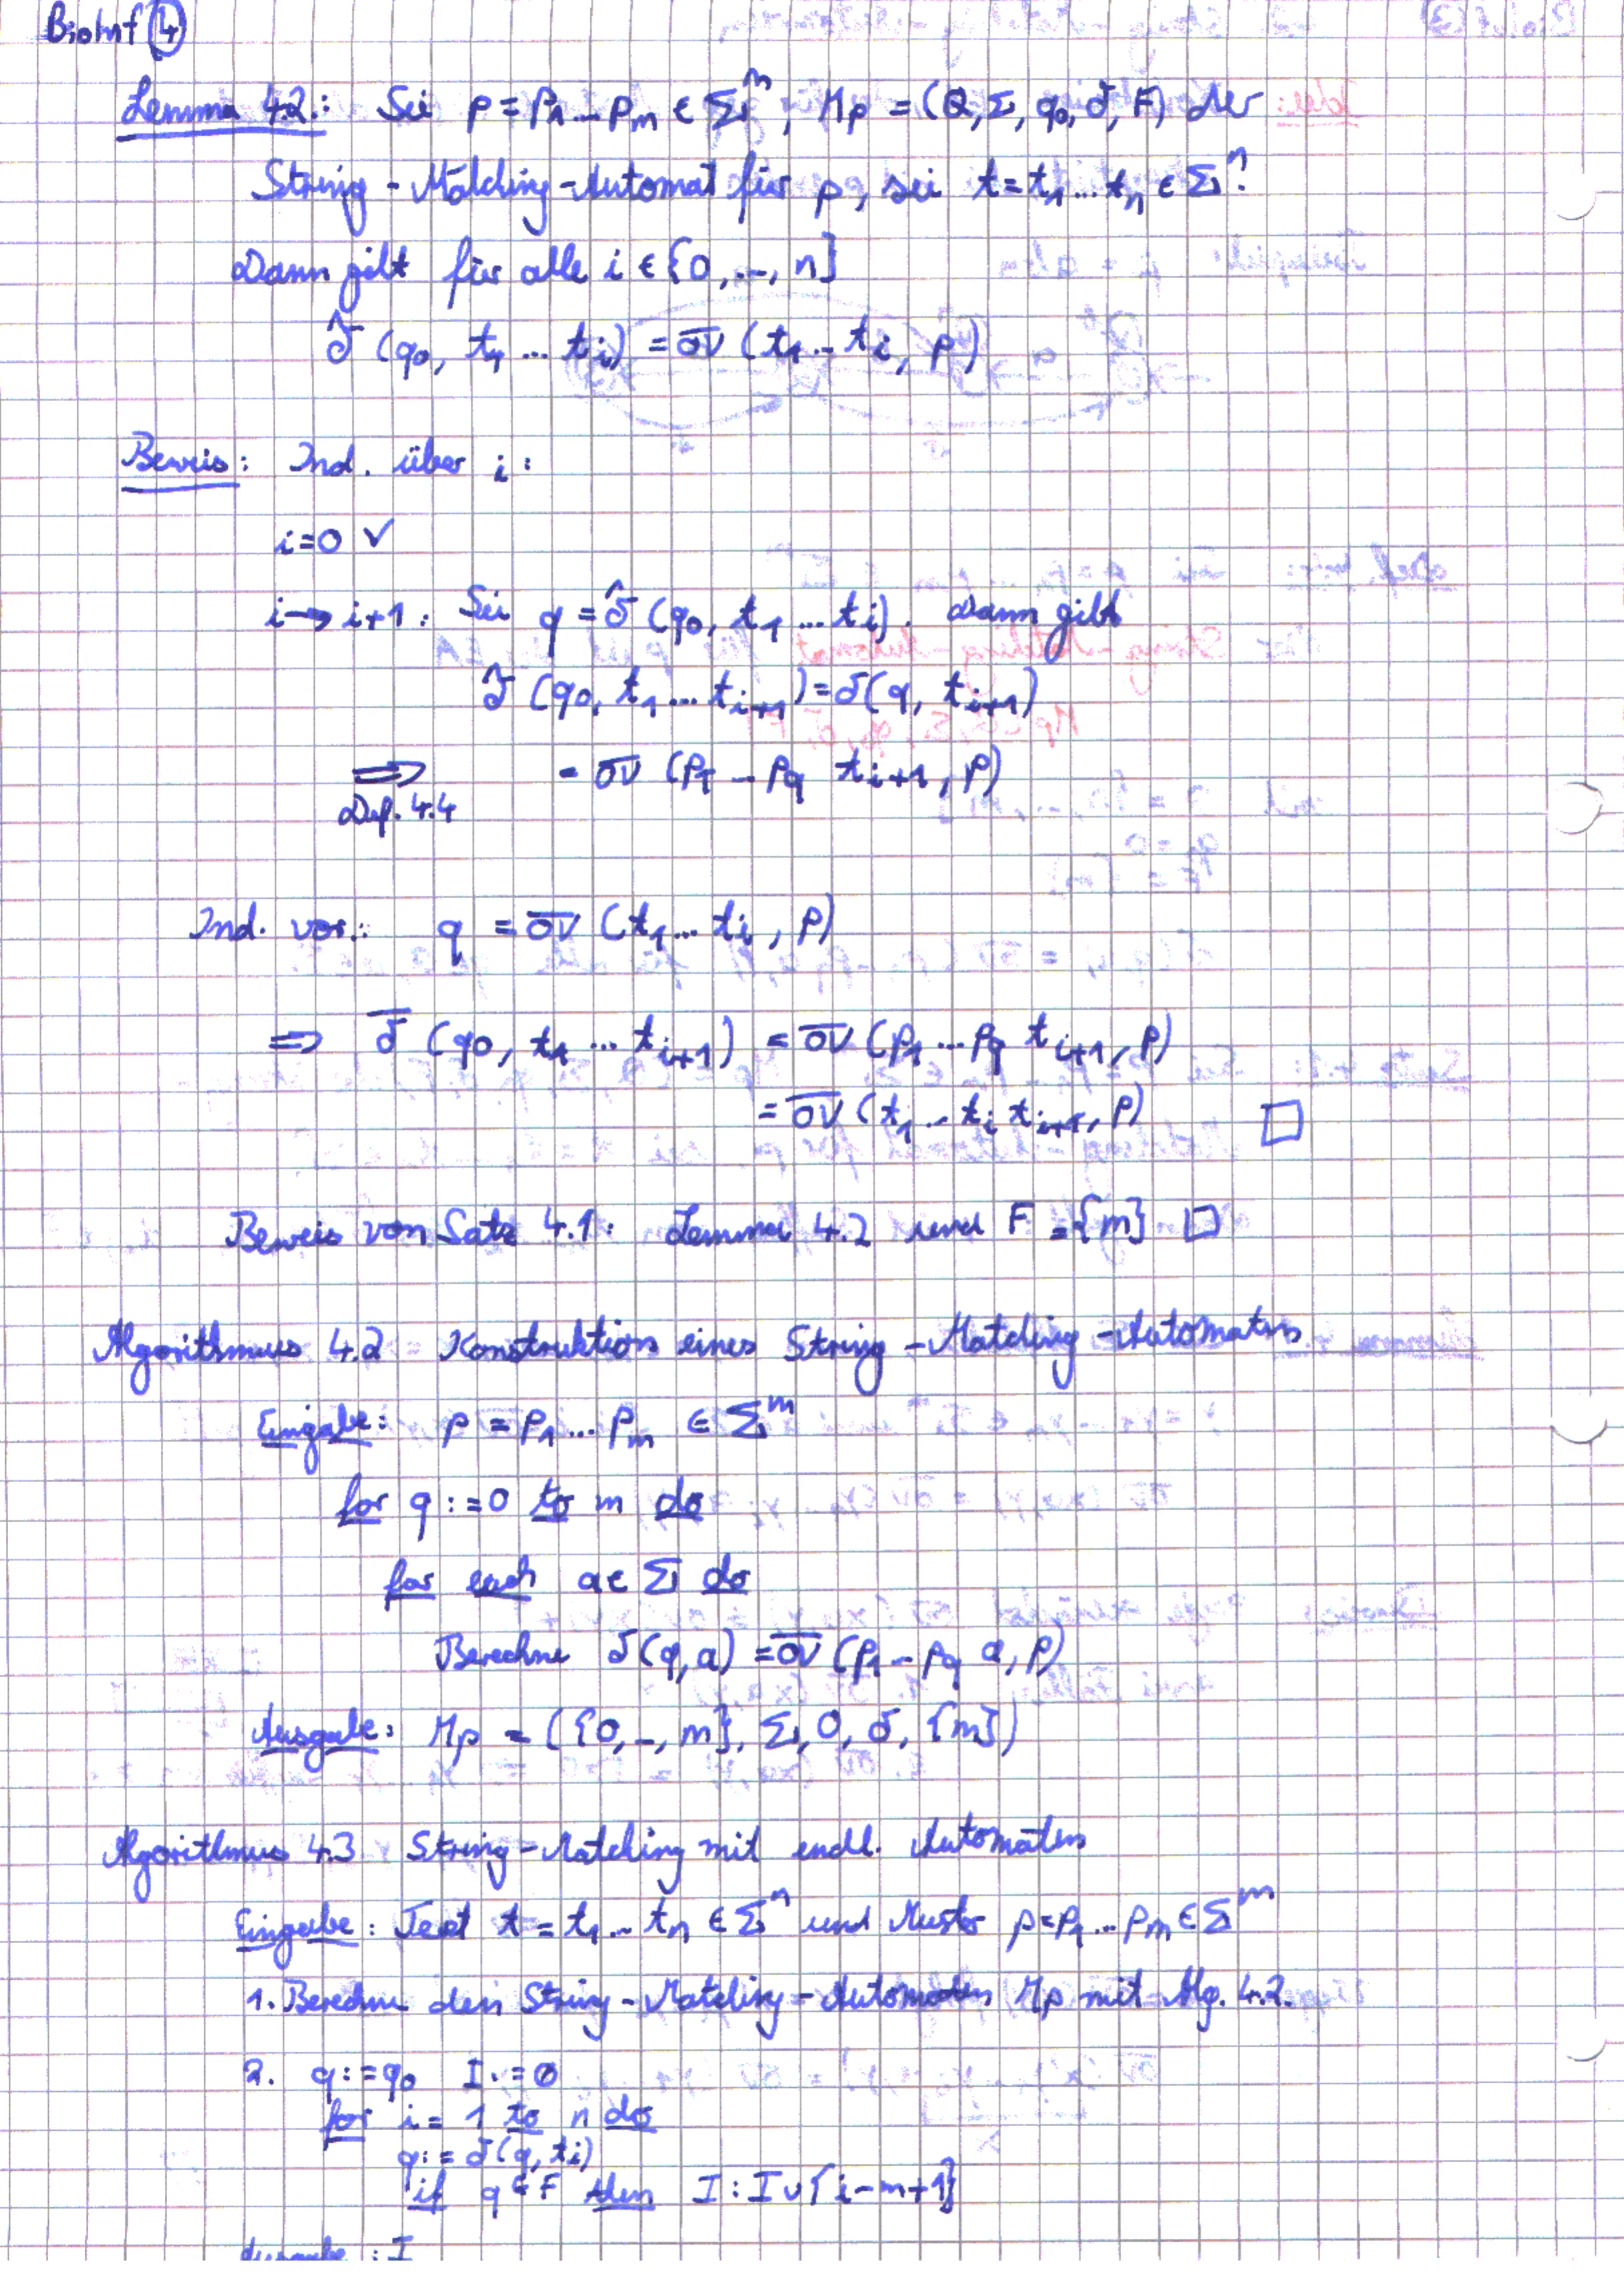 BioInf ④
Lemma 4.2.: Sei p = p₁ ... pₘ ∈ Σᵐ, Mp = (Q, Σ, q₀, δ, F) der
String-Matching-Automat für p, sei t = t₁ ... tₙ ∈ Σⁿ.
Dann gilt für alle i ∈ {0, ..., n}
δ̂ (q₀, t₁ ... tᵢ) = \overline{ov} (t₁ ... tᵢ, p)
Beweis: Ind. über i:
i=0 ✓
i → i+1: Sei q = δ̂ (q₀, t₁ ... tᵢ). Dann gilt
δ̂ (q₀, t₁ ... tᵢ₊₁) = δ(q, tᵢ₊₁)
⟹ = \overline{ov} (p₁ ... p_q tᵢ₊₁, p)
Def. 4.4
Ind. vor.: q = \overline{ov} (t₁ ... tᵢ, p)
⟹ \overline{δ} (q₀, t₁ ... tᵢ₊₁) = \overline{ov} (p₁ ... p_q tᵢ₊₁, p)
= \overline{ov} (t₁ ... tᵢ tᵢ₊₁, p) □
Beweis von Satz 4.1: Lemma 4.2 und F = {m} □
Algorithmus 4.2 Konstruktion eines String-Matching-Automaten
Eingabe: p = p₁ ... pₘ ∈ Σᵐ
for q := 0 to m do
for each a ∈ Σ do
Berechne δ(q, a) = \overline{ov} (p₁ ... p_q a, p)
Ausgabe: Mp = ({0, ..., m}, Σ, 0, δ, {m})
Algorithmus 4.3 String-Matching mit endl. Automaten
Eingabe: Text t = t₁ ... tₙ ∈ Σⁿ und Muster p = p₁ ... pₘ ∈ Σᵐ
1. Berechne den String-Matching-Automaten Mp mit Alg. 4.2.
2. q := q₀ I := ∅
for i = 1 to n do
q := δ(q, tᵢ)
if q ∈ F then I : I ∪ {i-m+1}
Ausgabe: I